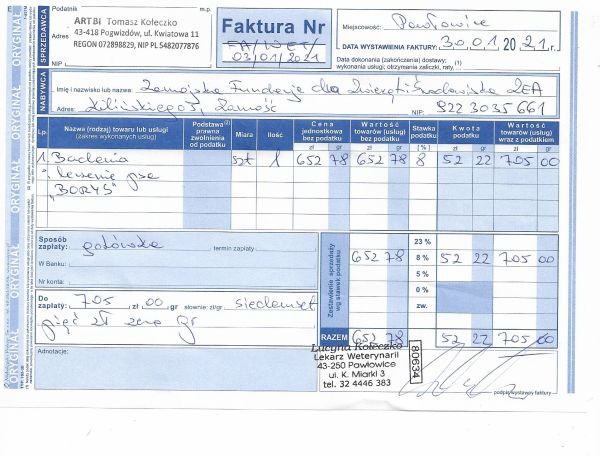 ORYGINAŁ ORYGINAŁ ORYGINAŁ ORYGINAŁ
SPRZEDAWCA
Podatnik
m.p.
ARTBi Tomasz Kołeczko
Adres 43-418 Pogwizdów, ul. Kwiatowa 11
REGON 072898829, NIP PL 5482077876
NIP
Faktura Nr
FA/WET/
03/01/2021
Miejscowość: Pawłowice
DATA WYSTAWIENIA FAKTURY: 30.01 2021 r.
Data dokonania (zakończenia) dostawy;
wykonania usługi; otrzymania zaliczki, raty, (1)
NABYWCA
Imię i nazwisko lub nazwa: Zamojska Fundacja dla Zwierząt i Środowiska ZEA
Adres: Kilińskiego, Zamość NIP: 922 3035 661
Lp Nazwa (rodzaj) towaru lub usługi (zakres wykonanych usług) Podstawa(2) prawna zwolnienia od podatku Miara Ilość Cena jednostkowa bez podatku Wartość towarów (usług) bez podatku Stawka podatku [%] Kwota podatku Wartość towarów (usług) wraz z podatkiem
zł gr zł gr zł gr zł gr
1 Badania szt 1 652 78 652 78 8 52 22 705 00
leczenie psa
"BORYS"
Sposób zapłaty: gotówka termin zapłaty
W Banku:
Nr konta:
Zestawienie sprzedaży wg stawek podatku
23 %
652 78 8 % 52 22 705 00
5 %
0 %
zw.
RAZEM 652 78 52 22 705 00
Do zapłaty: 705 zł 00 gr słownie: zł/gr siedemset
pięć zł zero gr
Adnotacje:
Lucyna Kołeczko
Lekarz Weterynarii
43-250 Pawłowice
ul. K. Miarki 3
tel. 32 4446 383
80634
podpis wystawcy faktury